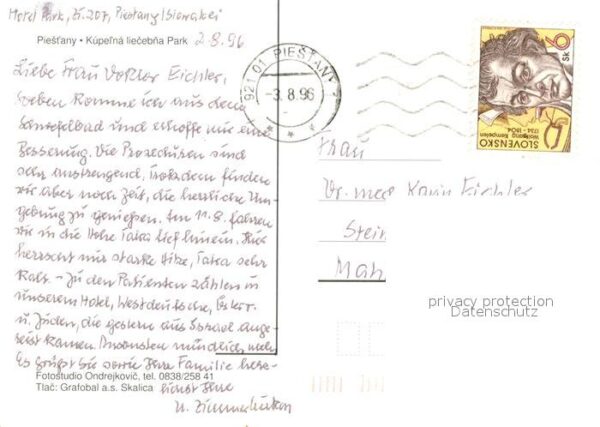 Hotel Park, Zi. 207, Piešťany / Slowakei
Piešťany • Kúpeľná liečebňa Park 2.8.96
Liebe Frau Doktor Eichler,
soeben komme ich aus dem
Schwefelbad und erhoffe mir eine
Besserung. Die Prozeduren sind
sehr anstrengend, trotzdem finden
wir aber noch Zeit, die herrliche Um-
gebung zu genießen. Am 11.8. fahren
wir in die Hohe Tatra hinein. Hier
herrscht nur starke Hitze, Tatra sehr
kalt. – Zu den Patienten zählen in
unserem Hotel, Westdeutsche, Österr.
u. Juden, die gestern aus Israel ange-
reist kamen. Ansonsten mündlich mehr
Es grüßt Sie sowie Ihre Familie herz-
lichst Ihre
Fotoštúdio Ondrejkovič, tel. 0838/258 41
Tlač: Grafobal a.s. Skalica
921 01 PIEŠŤANY
-3.8.96
SLOVENSKO
Wolfgang Kempelen
1734 - 1804
6 Sk
Frau
Dr. med. Karin Eichler
Stein
Mah
privacy protection
Datenschutz